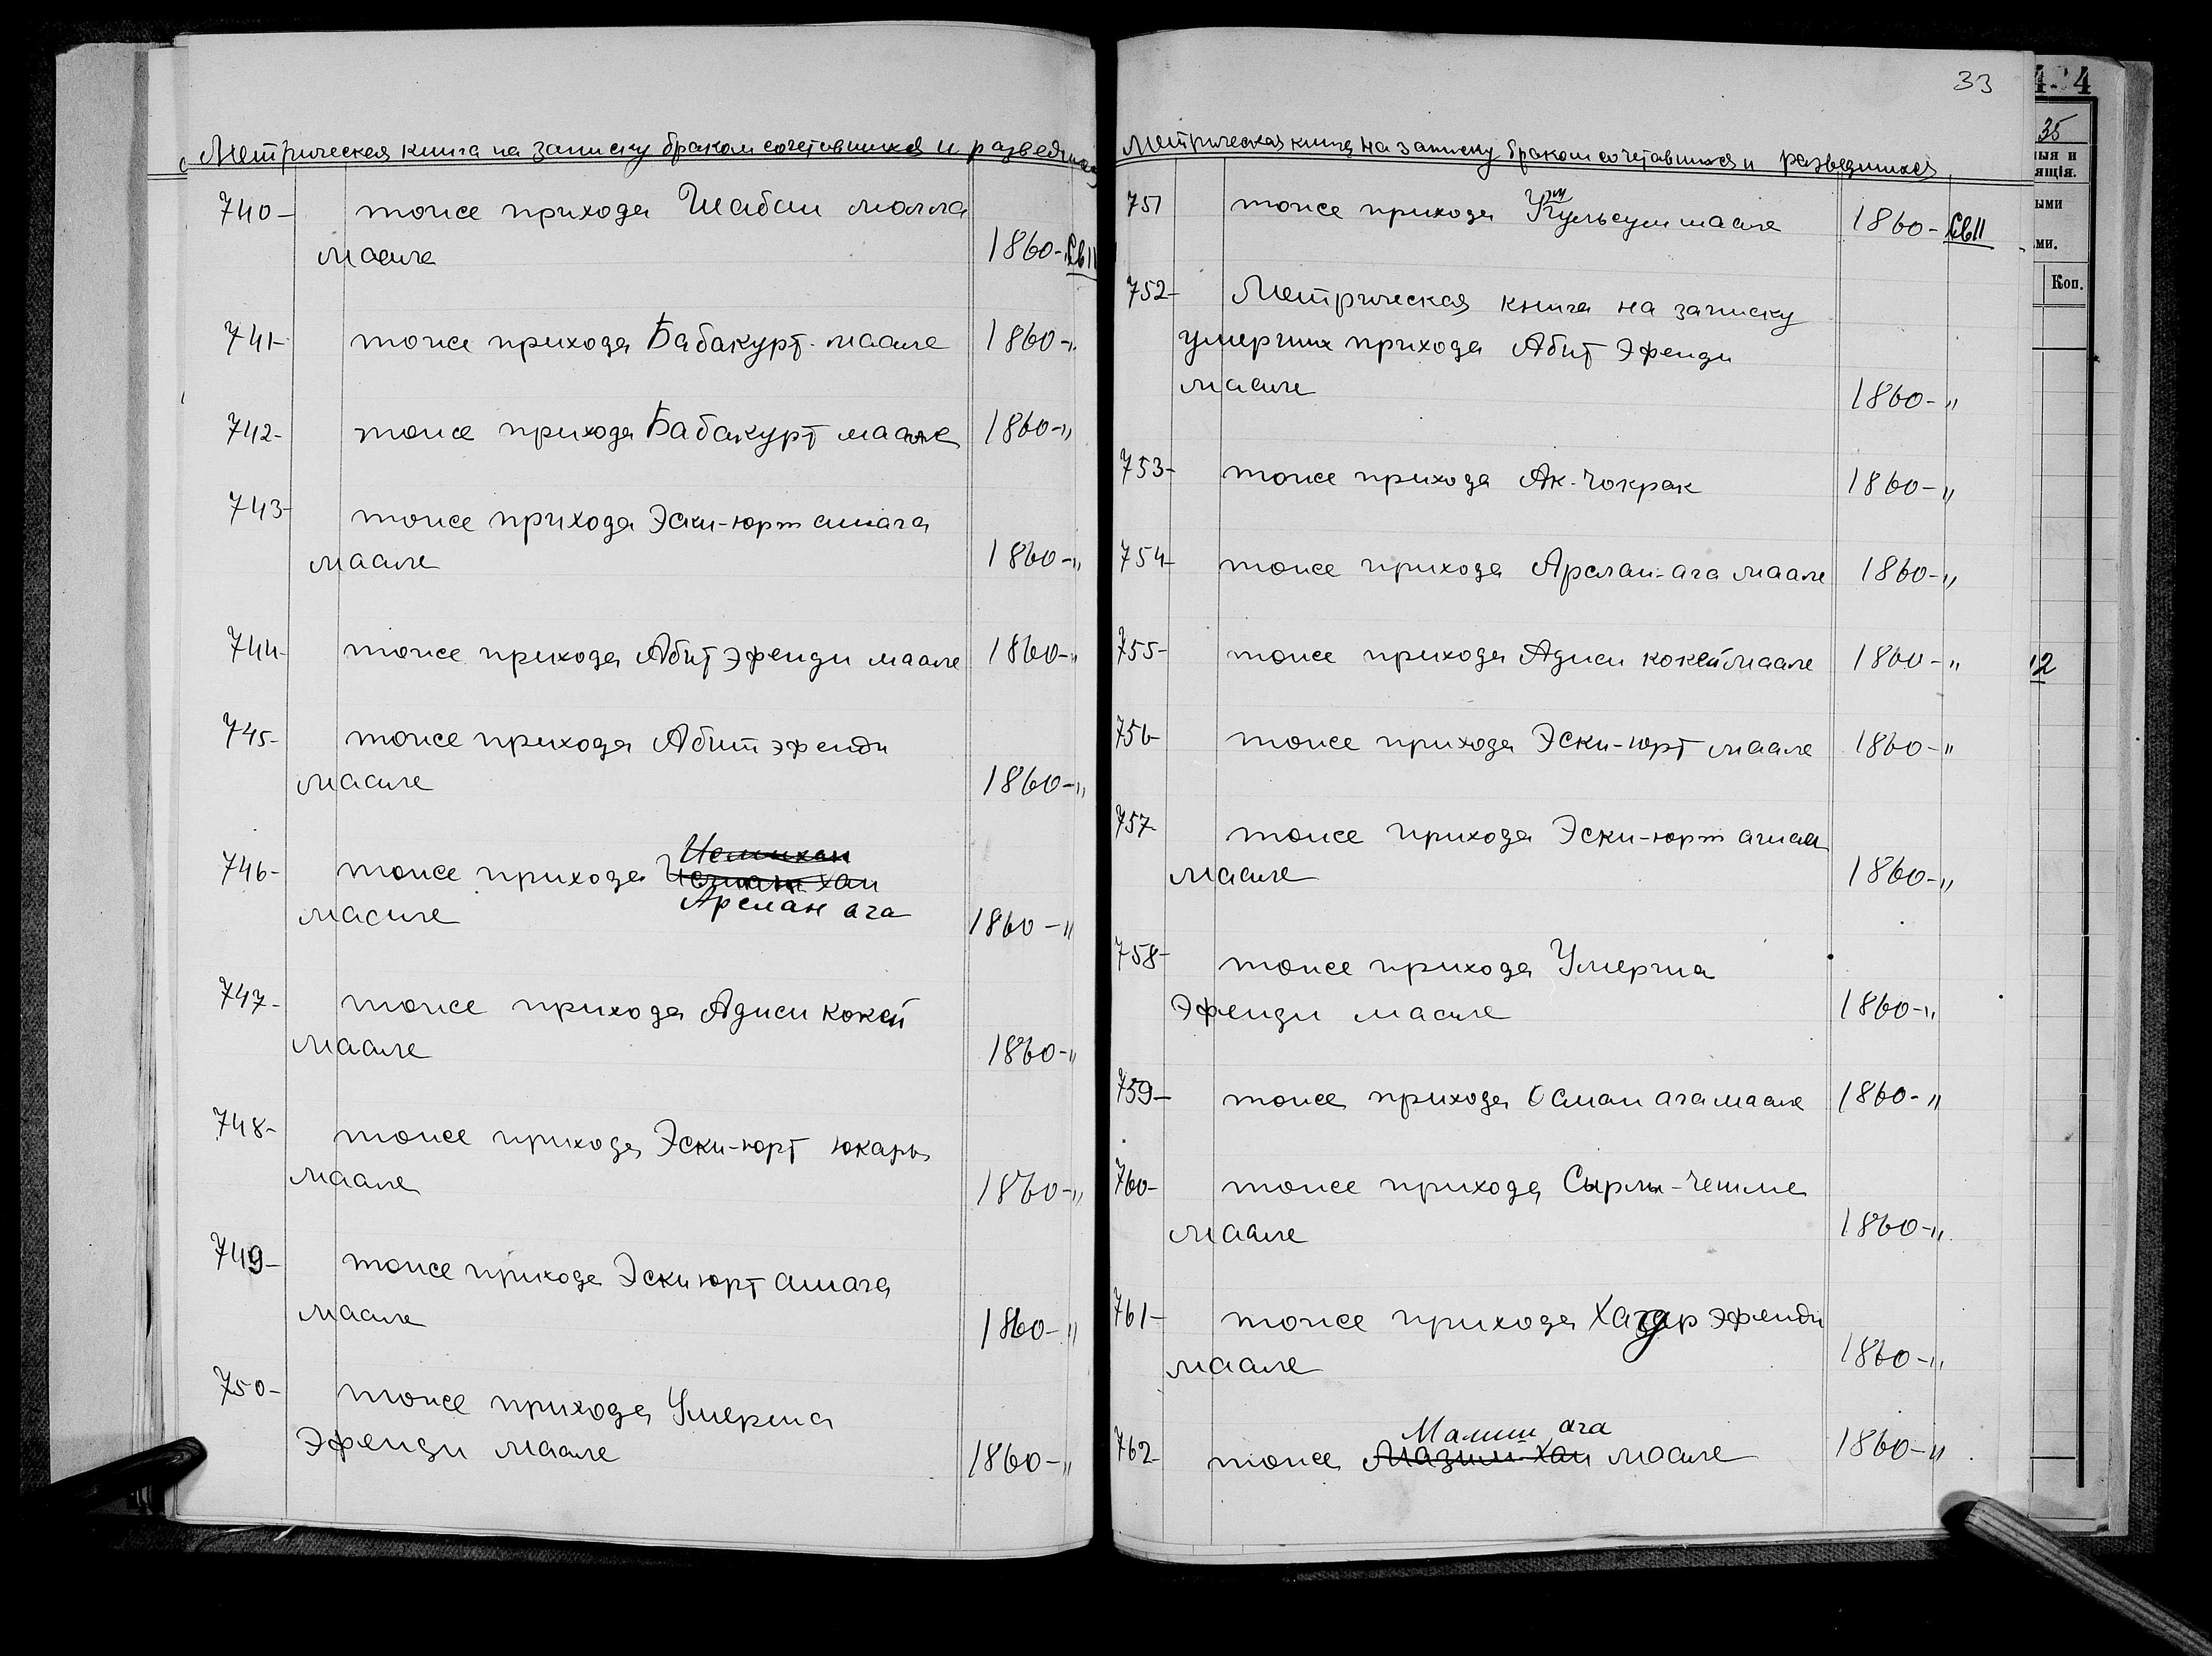 Метрическая книга на записку браком сочетовшихся и разведшихся
740- тоже прихода Шабан молла
маале 1860-" Св11
741- тоже прихода Бабакурт-маале 1860-"
742- тоже прихода Бабакурт маале 1860-"
743- тоже прихода Эски-юрт ашага
маале 1860-"
744- тоже прихода Абит эфенди маале 1860-"
745- тоже прихода Абит эфенди
маале 1860-"
746- тоже прихода
Арслан ага
маале 1860-"
747- тоже прихода Аджи кокей
маале 1860-"
748- тоже прихода Эски-юрт юкары
маале 1860-"
749- тоже прихода Эски юрт ашага
маале 1860-"
750- тоже прихода Умерша
Эфенди маале 1860-"
33
Метрическая книга на записку браком сочетавшихся и разведшихся
751 тоже прихода маале 1860- Св11
752- Метрическая книга на записку
умерших прихода Абит Эфенди
маале 1860-"
753- тоже прихода Ак-Чокрак 1860-"
754- тоже прихода Арслан-ага маале 1860-"
755- тоже прихода Аджи кокей маале 1860-"
756- тоже прихода Эски-юрт маале 1860-"
757- тоже прихода Эски-юрт ашага
маале 1860-"
758- тоже прихода Умерша
Эфенди маале 1860-"
759- тоже прихода Осман ага маале 1860-"
760- тоже прихода Сырлы-Чешме
маале 1860-"
761- тоже прихода эфенди
маале 1860-"
Малиш ага
762 тоже Мазин-хан маале 1860-"
4-14
35
ныя и
ящія.
ыми
ми.
Коп.
12